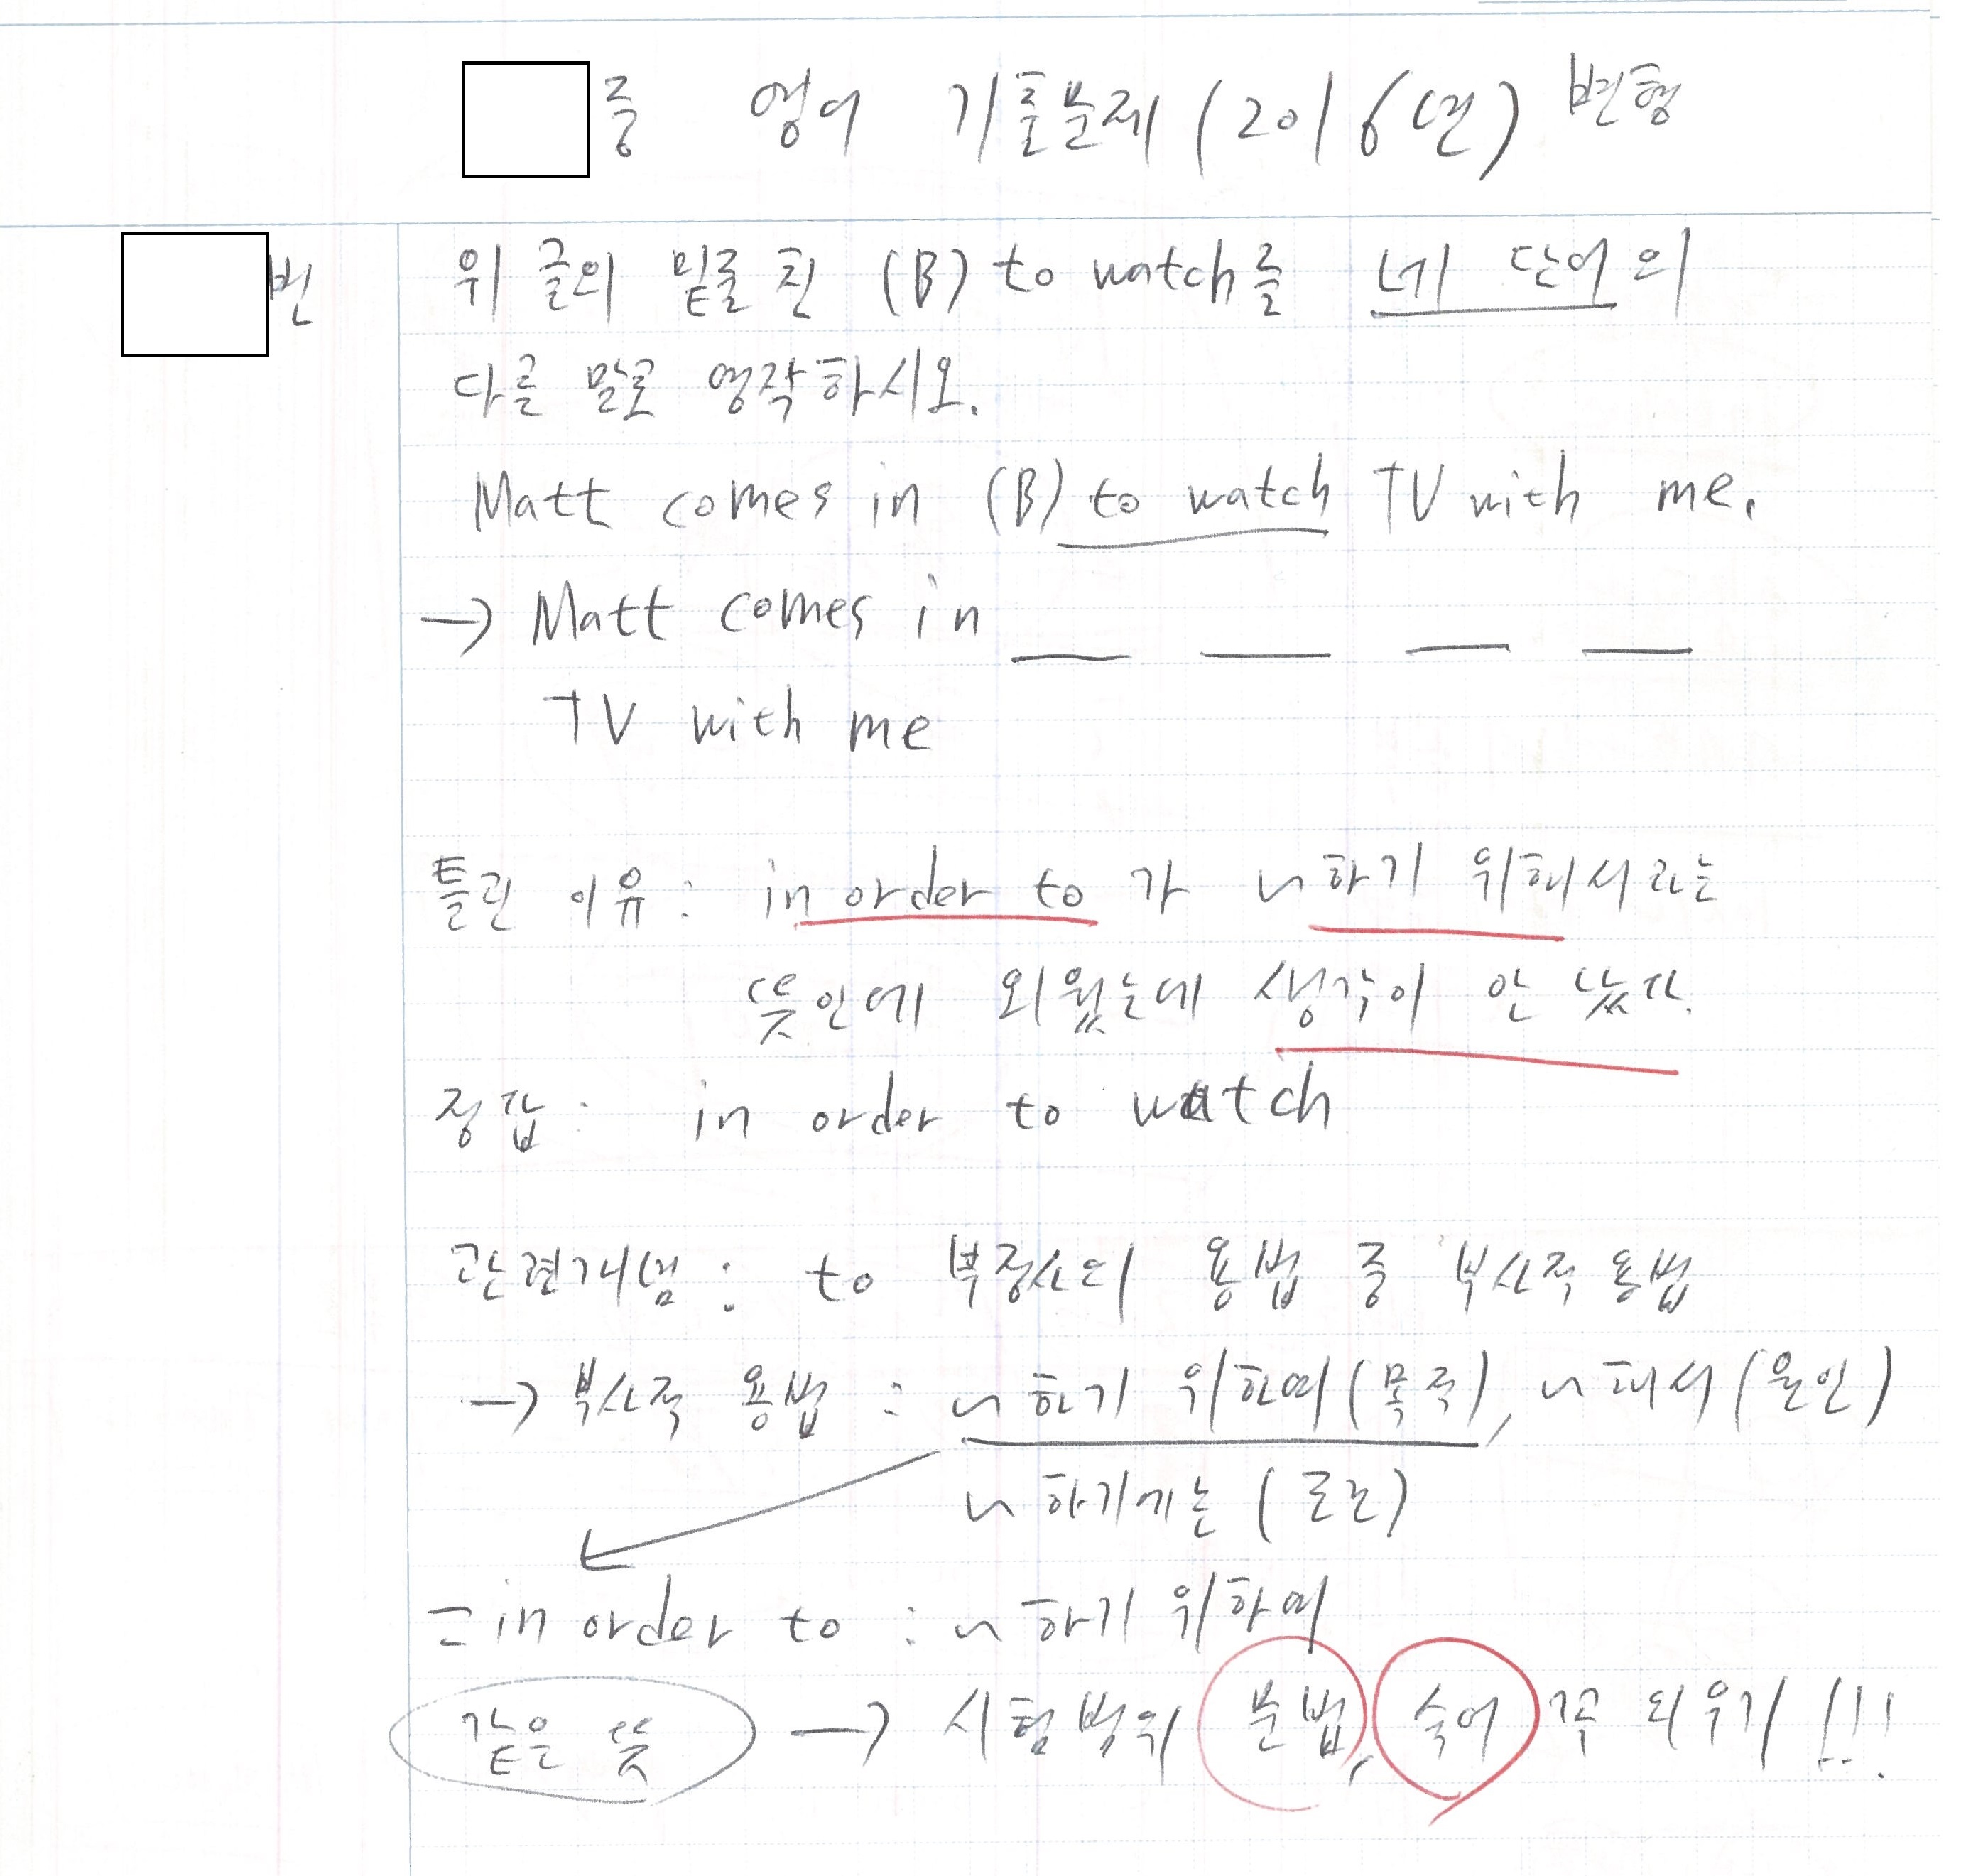 중 영어 기출문제 (2016년) 변형
번 위 글의 밑줄 친 (B) to watch를 네 단어의
다른 말로 영작하시오.
Matt comes in (B) to watch TV with me.
→ Matt comes in __ __ __ __
TV with me
틀린 이유 : in order to 가 ~하기 위해서라는
뜻인데 외웠는데 생각이 안 났다.
정답 : in order to watch
관련개념 : to 부정사의 용법 중 부사적 용법
→ 부사적 용법 : ~하기 위하여 (목적), ~해서 (원인)
~하기에는 (
= in order to : ~하기 위하여
같은 뜻 → 시험범위 문법, 숙어 꼭 외우기!!!